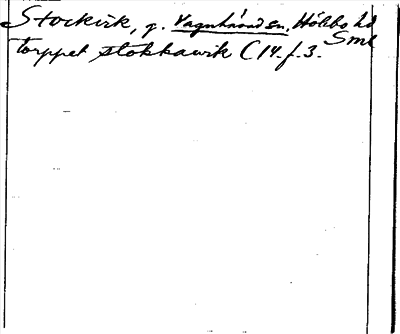 Stockvik, g. Vagnhärad sn. Hölebo hd
Sml
torppet stokkawik C 14. f. 3.